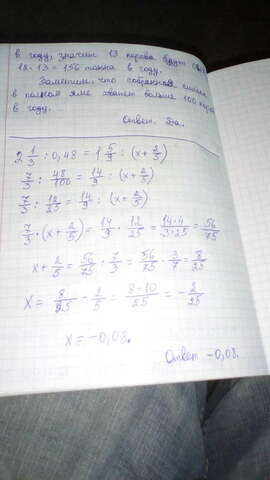 в году, значит 13 коров будут
12 · 13 = 156 тонна в году.
Заметим, что собранная
в полной яме хватит больше 100
в году.
Ответ. Да.
2 1/3 : 0,48 = 1 5/9 : (x + 2/5)
7/3 : 48/100 = 14/9 : (x + 2/5)
7/3 : 12/25 = 14/9 : (x + 2/5)
7/3 · (x + 2/5) = 14/9 · 12/25 = 14·4/3·25 = 56/75
x + 2/5 = 56/75 : 7/3 = 56/75 · 3/7 = 8/25
X = 8/25 - 2/5 = 8-10/25 = -2/25
x = -0,08.
Ответ -0,08.